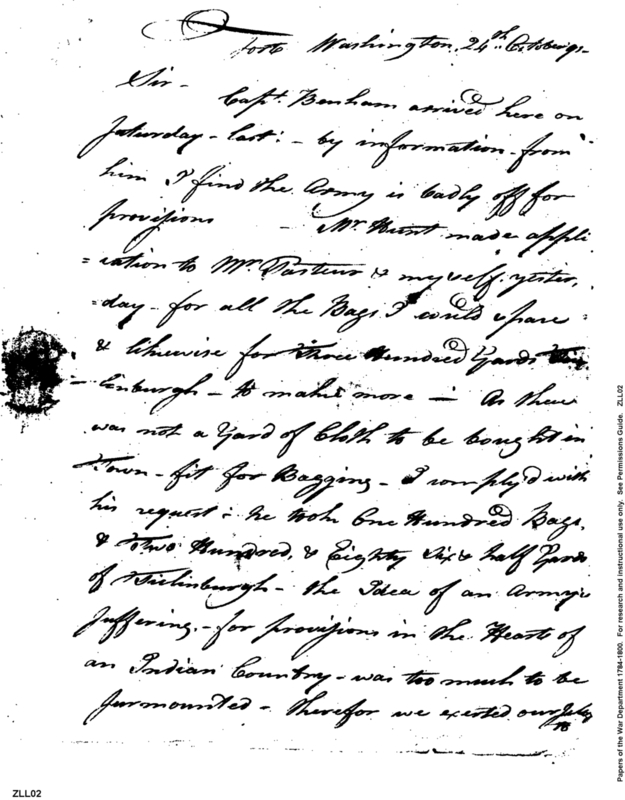 Fort Washington, 24th October 91-
Sir -
Capt. Benham arrived here on
Saturday - last: - by information - from
him I find the Army is badly off for
provisions - Mr. Hunt made appli
=cation to Mr. Pasteur & myself yester,
=day - for all the Bags I could spare
& likewise for Three Hundred Yards Tic
linburgh - to make more - As there
was not a Yard of Cloth to be bought in
Town - fit for Bagging - I comply'd with
his request: he took One Hundred Bags,
& Two Hundred, & Eighty Six & half Yards
of Ticlinburgh - the Idea of an Army's
Suffering, - for provisions in the Heart of
an Indian Country - was too much to be
Surmounted - therefor we exerted our Selves
to
Papers of the War Department 1784-1800. For research and instructional use only. See Permissions Guide. ZLL02
ZLL02